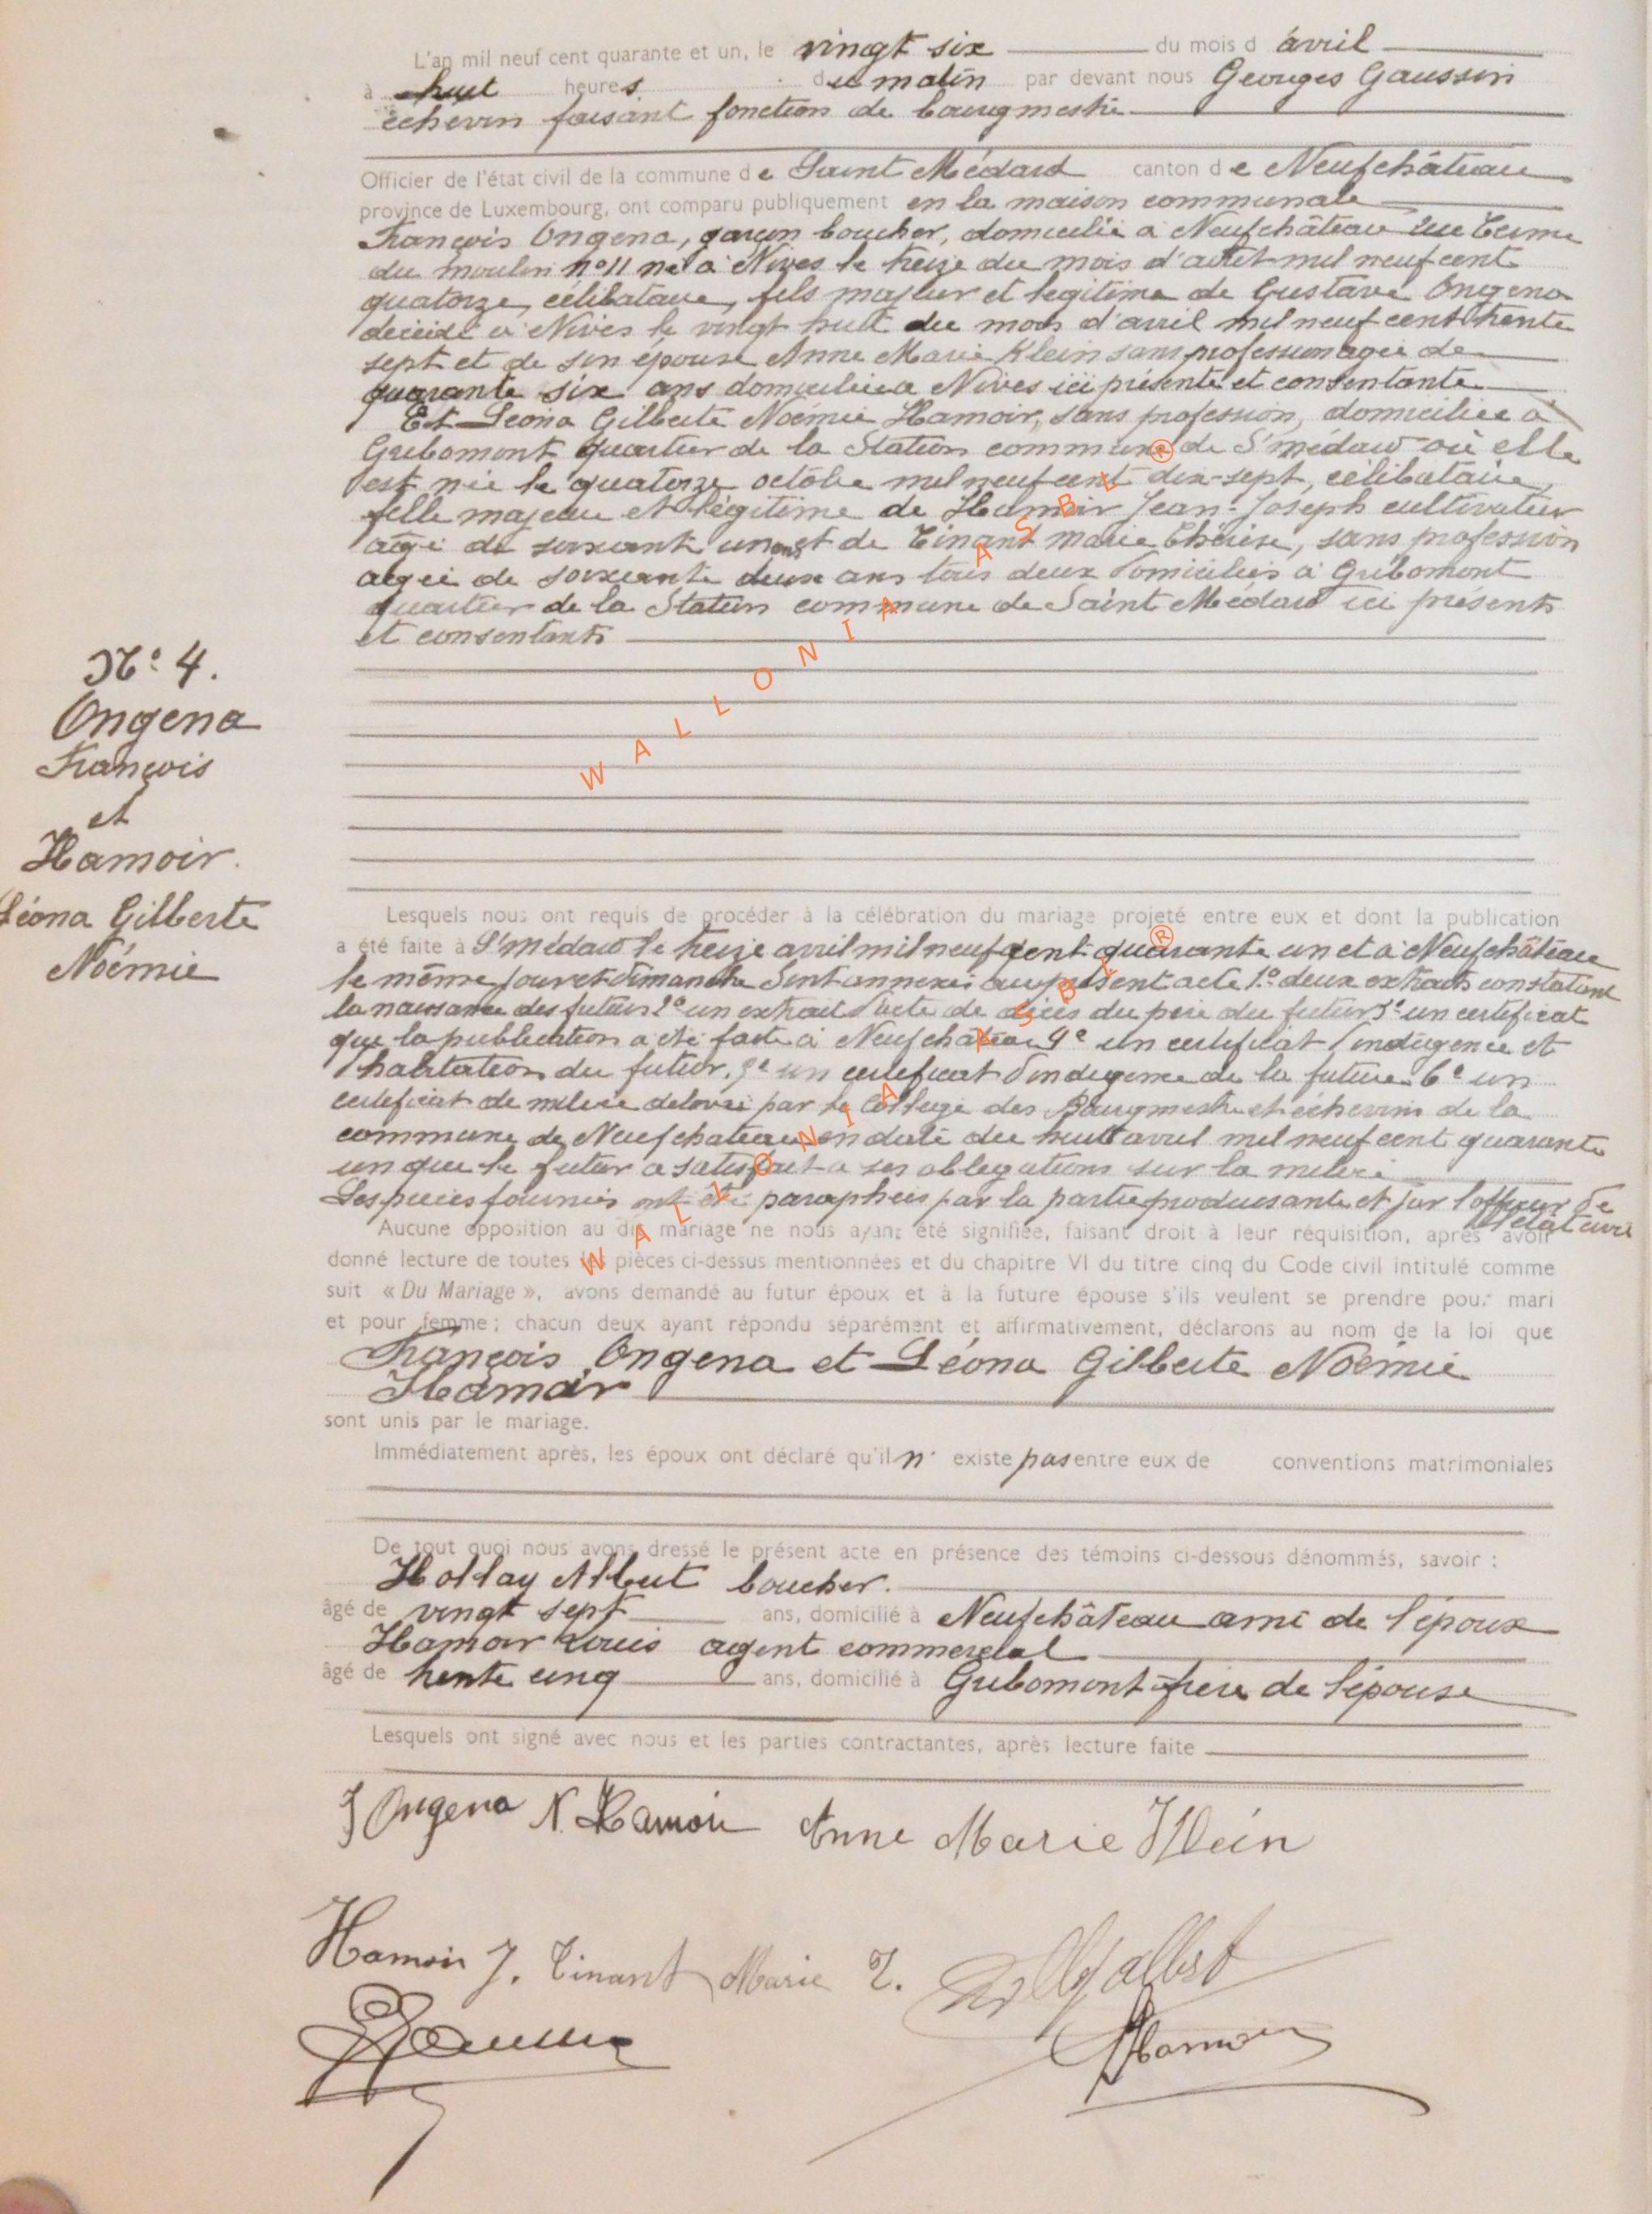 L'an mil neuf cent quarante et un, le vingt six du mois d avril
à huit heures du matin par devant nous Georges Gaussin
échevin faisant fonction de bourgmestre
Officier de l'état civil de la commune de Saint Médard canton de Neufchâteau
province de Luxembourg, ont comparu publiquement en la maison communale
François Ongena, garçon boucher, domicilié à Neufchâteau rue
du moulin n° 11 né à Nives le treize du mois d'août mil neuf cent
quatorze, célibataire, fils majeur et légitime de Gustave Ongena
décédé à Nives le vingt huit du mois d'avril mil neuf cent trente
sept et de son épouse Anne Marie Klein sans profession agée de
quarante six ans domiciliée à Nives ici présente et consentante
Et Léona Gilberte Noémie Hamoir, sans profession, domiciliée à
Gribomont quartier de la Station commune de St médard où elle
est née le quatorze octobre mil neuf cent dix-sept, célibataire,
fille majeure et légitime de Hamoir Jean-Joseph cultivateur
agé de soixante un ans et de Tinant Marie Thérèse, sans profession
agée de soixante deux ans tous deux domiciliés à Gribomont
quartier de la Station commune de Saint Médard ici présents
et consentants
N° 4.
Ongena
François
et
Hamoir.
Léona Gilberte
Noémie
Lesquels nous ont requis de procéder à la célébration du mariage projeté entre eux et dont la publication
a été faite à St médard le treize avril mil neuf cent quarante un et à Neufchâteau
le même jour et dimanche Sont annexés au présent acte 1° deux extraits constatant
la naissance des futurs 2° un extrait d'acte de décès du père du futur 3° un certificat
que la publication a été faite à Neufchâteau 4e un certificat d'indigence et
d'habitation du futur. 5e un certificat d'indigence de la future 6e un
certificat de milice délivré par le Collège des Bourgmestre et échevins de la
commune de Neufchateau en date du huit avril mil neuf cent quarante
un que le futur a satisfait à ses obligations sur la milice
Les pièces fournies ont été paraphées par la partie produisante et par l'officier de
l'état civil
Aucune opposition au dit mariage ne nous ayant été signifiée, faisant droit à leur réquisition, après avoir
donné lecture de toutes les pièces ci-dessus mentionnées et du chapitre VI du titre cinq du Code civil intitulé comme
suit « Du Mariage », avons demandé au futur époux et à la future épouse s'ils veulent se prendre pour mari
et pour femme ; chacun deux ayant répondu séparément et affirmativement, déclarons au nom de la loi que
François Ongena et Léona Gilberte Noémie
Hamoir
sont unis par le mariage.
Immédiatement après, les époux ont déclaré qu'il n' existe pas entre eux de conventions matrimoniales
De tout quoi nous avons dressé le présent acte en présence des témoins ci-dessous dénommés, savoir :
Hollay Albert boucher.
âgé de vingt sept ans, domicilié à Neufchâteau ami de l'époux
Hamoir Louis agent commercial
âgé de trente cinq ans, domicilié à Gribomont frère de l'épouse
Lesquels ont signé avec nous et les parties contractantes, après lecture faite
F Ongena N. Hamoir Anne Marie Klein
Hamoir J. Tinant Marie T.
Hamoir
WALLONIA ASBL ®
WALLONIA ASBL ®